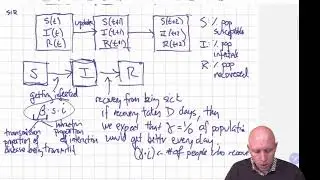 SIR
S(t) update S(t+1) S(t+2) S: % pop
susceptible
I(t) I(t+1) I(t+2) I: % pop
infected
R(t) R(t+1) R(t+2) R: % pop
recovered
S I R
getting infected recovery from being sick
β s·i if recovery takes D days, then
we expect that γ = 1/D of population
would get better every day.
transmission proportion
proportion of of interaction
disease being transmitted
(γ·i) = # of people who recover